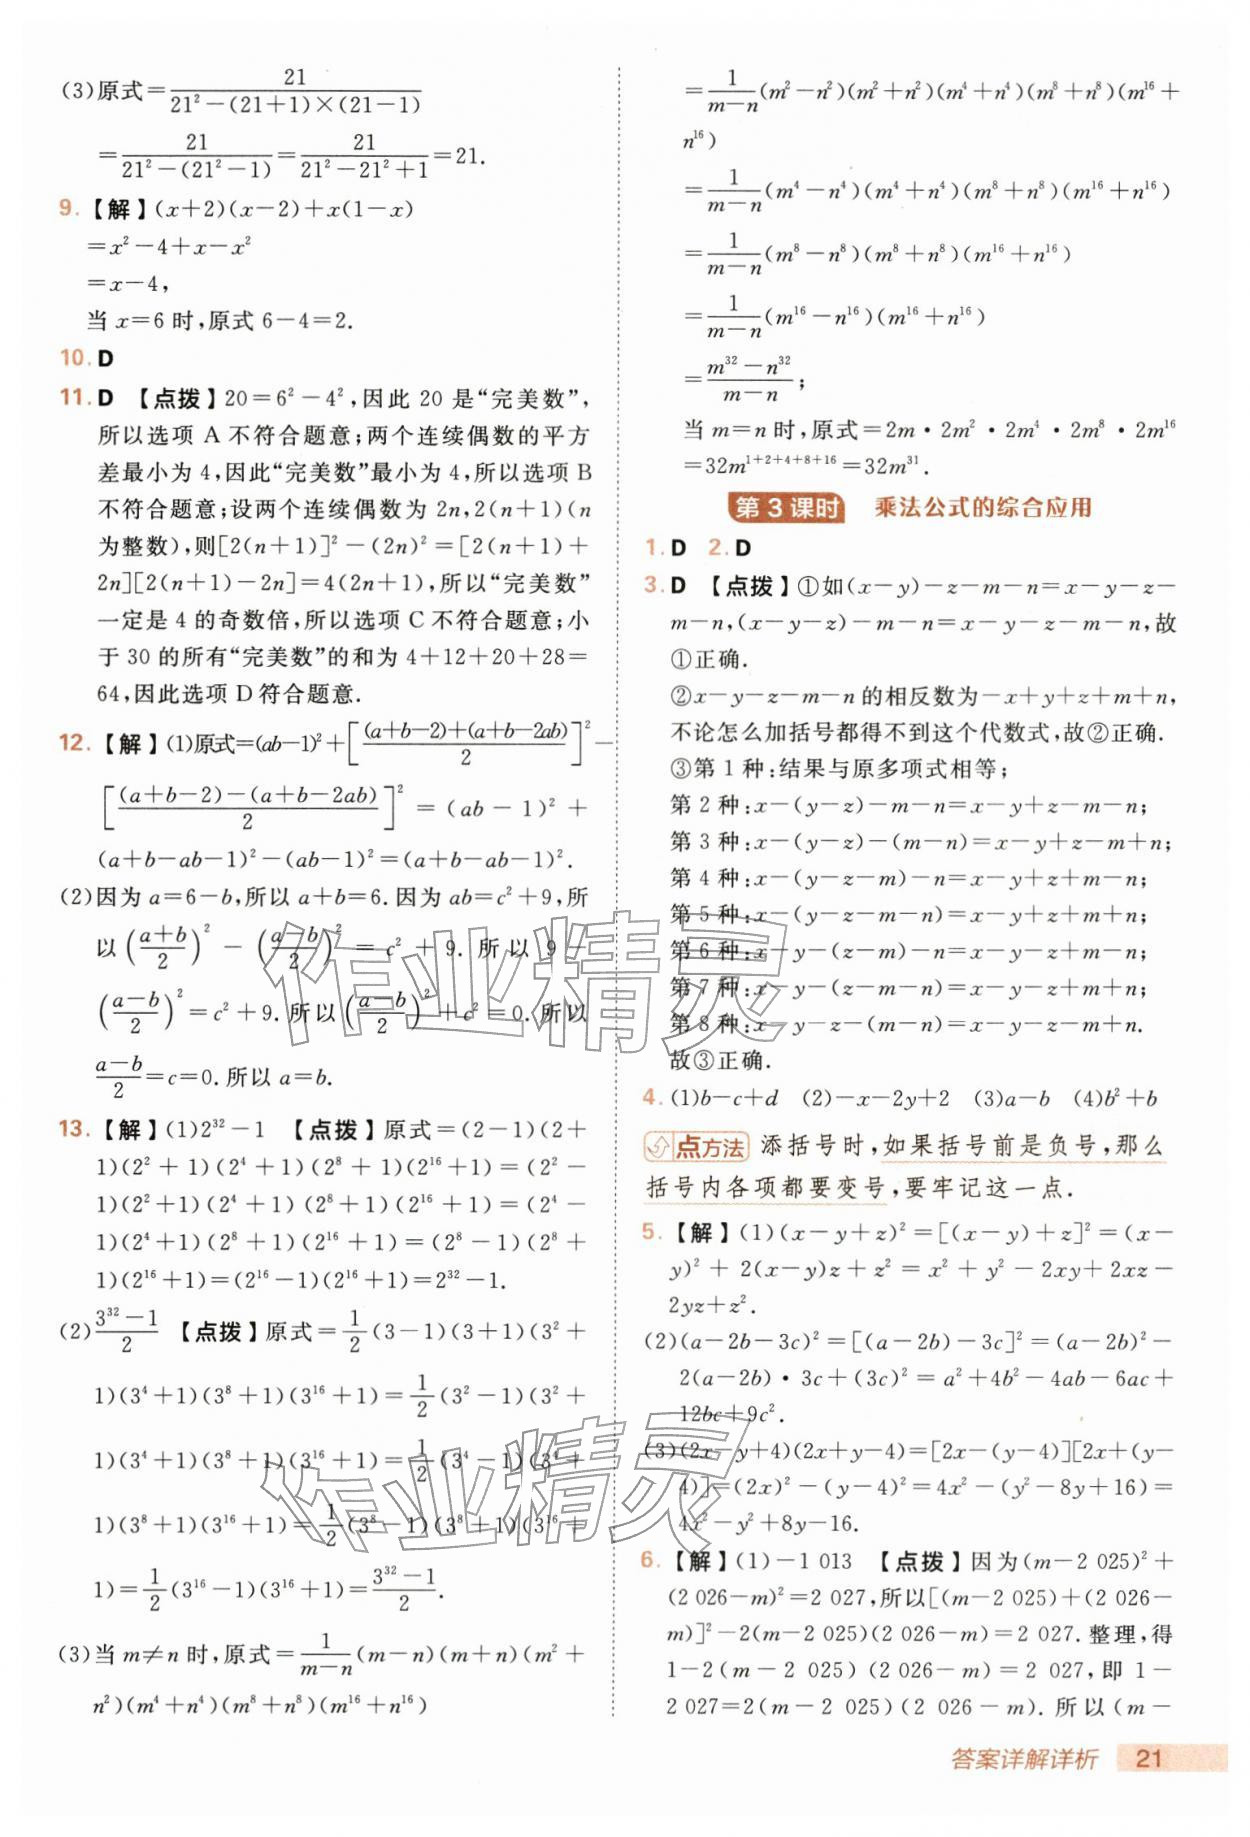 (3)原式=21/(21²-(21+1)×(21-1))
=21/(21²-(21²-1))=21/(21²-21²+1)=21.
9.【解】(x+2)(x-2)+x(1-x)
=x²-4+x-x²
=x-4,
当 x=6 时,原式 6-4=2.
10. D
11. D 【点拨】20=6²-4²,因此 20 是“完美数”,
所以选项 A 不符合题意;两个连续偶数的平方
差最小为 4,因此“完美数”最小为 4,所以选项 B
不符合题意;设两个连续偶数为 2n,2(n+1)(n
为整数),则[2(n+1)]²-(2n)²=[2(n+1)+
2n][2(n+1)-2n]=4(2n+1),所以“完美数”
一定是 4 的奇数倍,所以选项 C 不符合题意;小
于 30 的所有“完美数”的和为 4+12+20+28=
64,因此选项 D 符合题意.
12.【解】(1)原式=(ab-1)²+[((a+b-2)+(a+b-2ab))/2]²-
[((a+b-2)-(a+b-2ab))/2]²=(ab-1)²+
(a+b-ab-1)²-(ab-1)²=(a+b-ab-1)².
(2)因为 a=6-b,所以 a+b=6.因为 ab=c²+9,所
以((a+b)/2)²-((a-b)/2)²=c²+9.所以 9-
((a-b)/2)²=c²+9.所以((a-b)/2)²+c²=0.所以
(a-b)/2=c=0.所以 a=b.
13.【解】(1)2³²-1 【点拨】原式=(2-1)(2+
1)(2²+1)(2⁴+1)(2⁸+1)(2¹⁶+1)=(2²-
1)(2²+1)(2⁴+1)(2⁸+1)(2¹⁶+1)=(2⁴-
1)(2⁴+1)(2⁸+1)(2¹⁶+1)=(2⁸-1)(2⁸+
1)(2¹⁶+1)=(2¹⁶-1)(2¹⁶+1)=2³²-1.
(2)(3³²-1)/2 【点拨】原式=1/2(3-1)(3+1)(3²+
1)(3⁴+1)(3⁸+1)(3¹⁶+1)=1/2(3²-1)(3²+
1)(3⁴+1)(3⁸+1)(3¹⁶+1)=1/2(3⁴-1)(3⁴+
1)(3⁸+1)(3¹⁶+1)=1/2(3⁸-1)(3⁸+1)(3¹⁶+
1)=1/2(3¹⁶-1)(3¹⁶+1)=(3³²-1)/2.
(3)当 m≠n 时,原式=1/(m-n)(m-n)(m+n)(m²+
n²)(m⁴+n⁴)(m⁸+n⁸)(m¹⁶+n¹⁶)
=1/(m-n)(m²-n²)(m²+n²)(m⁴+n⁴)(m⁸+n⁸)(m¹⁶+
n¹⁶)
=1/(m-n)(m⁴-n⁴)(m⁴+n⁴)(m⁸+n⁸)(m¹⁶+n¹⁶)
=1/(m-n)(m⁸-n⁸)(m⁸+n⁸)(m¹⁶+n¹⁶)
=1/(m-n)(m¹⁶-n¹⁶)(m¹⁶+n¹⁶)
=(m³²-n³²)/(m-n);
当 m=n 时,原式=2m·2m²·2m⁴·2m⁸·2m¹⁶
=32m¹⁺²⁺⁴⁺⁸⁺¹⁶=32m³¹.
第 3 课时 乘法公式的综合应用
1. D 2. D
3. D 【点拨】①如(x-y)-z-m-n=x-y-z-
m-n,(x-y-z)-m-n=x-y-z-m-n,故
①正确.
②x-y-z-m-n 的相反数为-x+y+z+m+n,
不论怎么加括号都得不到这个代数式,故②正确.
③第 1 种:结果与原多项式相等;
第 2 种:x-(y-z)-m-n=x-y+z-m-n;
第 3 种:x-(y-z)-(m-n)=x-y+z-m+n;
第 4 种:x-(y-z-m)-n=x-y+z+m-n;
第 5 种:x-(y-z-m-n)=x-y+z+m+n;
第 6 种:x-y-(z-m)-n=x-y-z+m-n;
第 7 种:x-y-(z-m-n)=x-y-z+m+n;
第 8 种:x-y-z-(m-n)=x-y-z-m+n.
故③正确.
4. (1)b-c+d (2)-x-2y+2 (3)a-b (4)b²+b
点方法 添括号时,如果括号前是负号,那么
括号内各项都要变号,要牢记这一点.
5.【解】(1)(x-y+z)²=[(x-y)+z]²=(x-
y)²+2(x-y)z+z²=x²+y²-2xy+2xz-
2yz+z².
(2)(a-2b-3c)²=[(a-2b)-3c]²=(a-2b)²-
2(a-2b)·3c+(3c)²=a²+4b²-4ab-6ac+
12bc+9c².
(3)(2x-y+4)(2x+y-4)=[2x-(y-4)][2x+(y-
4)]=(2x)²-(y-4)²=4x²-(y²-8y+16)=
4x²-y²+8y-16.
6.【解】(1)-1 013 【点拨】因为(m-2 025)²+
(2 026-m)²=2 027,所以[(m-2 025)+(2 026-
m)]²-2(m-2 025)(2 026-m)=2 027.整理,得
1-2(m-2 025)(2 026-m)=2 027,即 1-
2 027=2(m-2 025)(2 026-m).所以(m-
答案详解详析 21
作业精灵
作业精灵